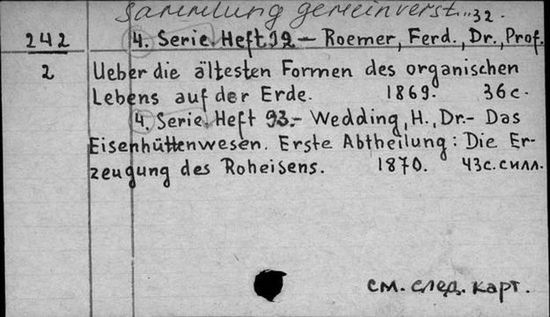 Sammlung gemeinverst...32.
242 4. Serie. Heft 92 – Roemer, Ferd., Dr., Prof.
2 Ueber die ältesten Formen des organischen
Lebens auf der Erde. 1869. 36 с.
4. Serie. Heft 93.- Wedding, H., Dr.- Das
Eisenhüttenwesen. Erste Abtheilung: Die Er-
zeugung des Roheisens. 1870. 43 с. силл.
см. след. карт.